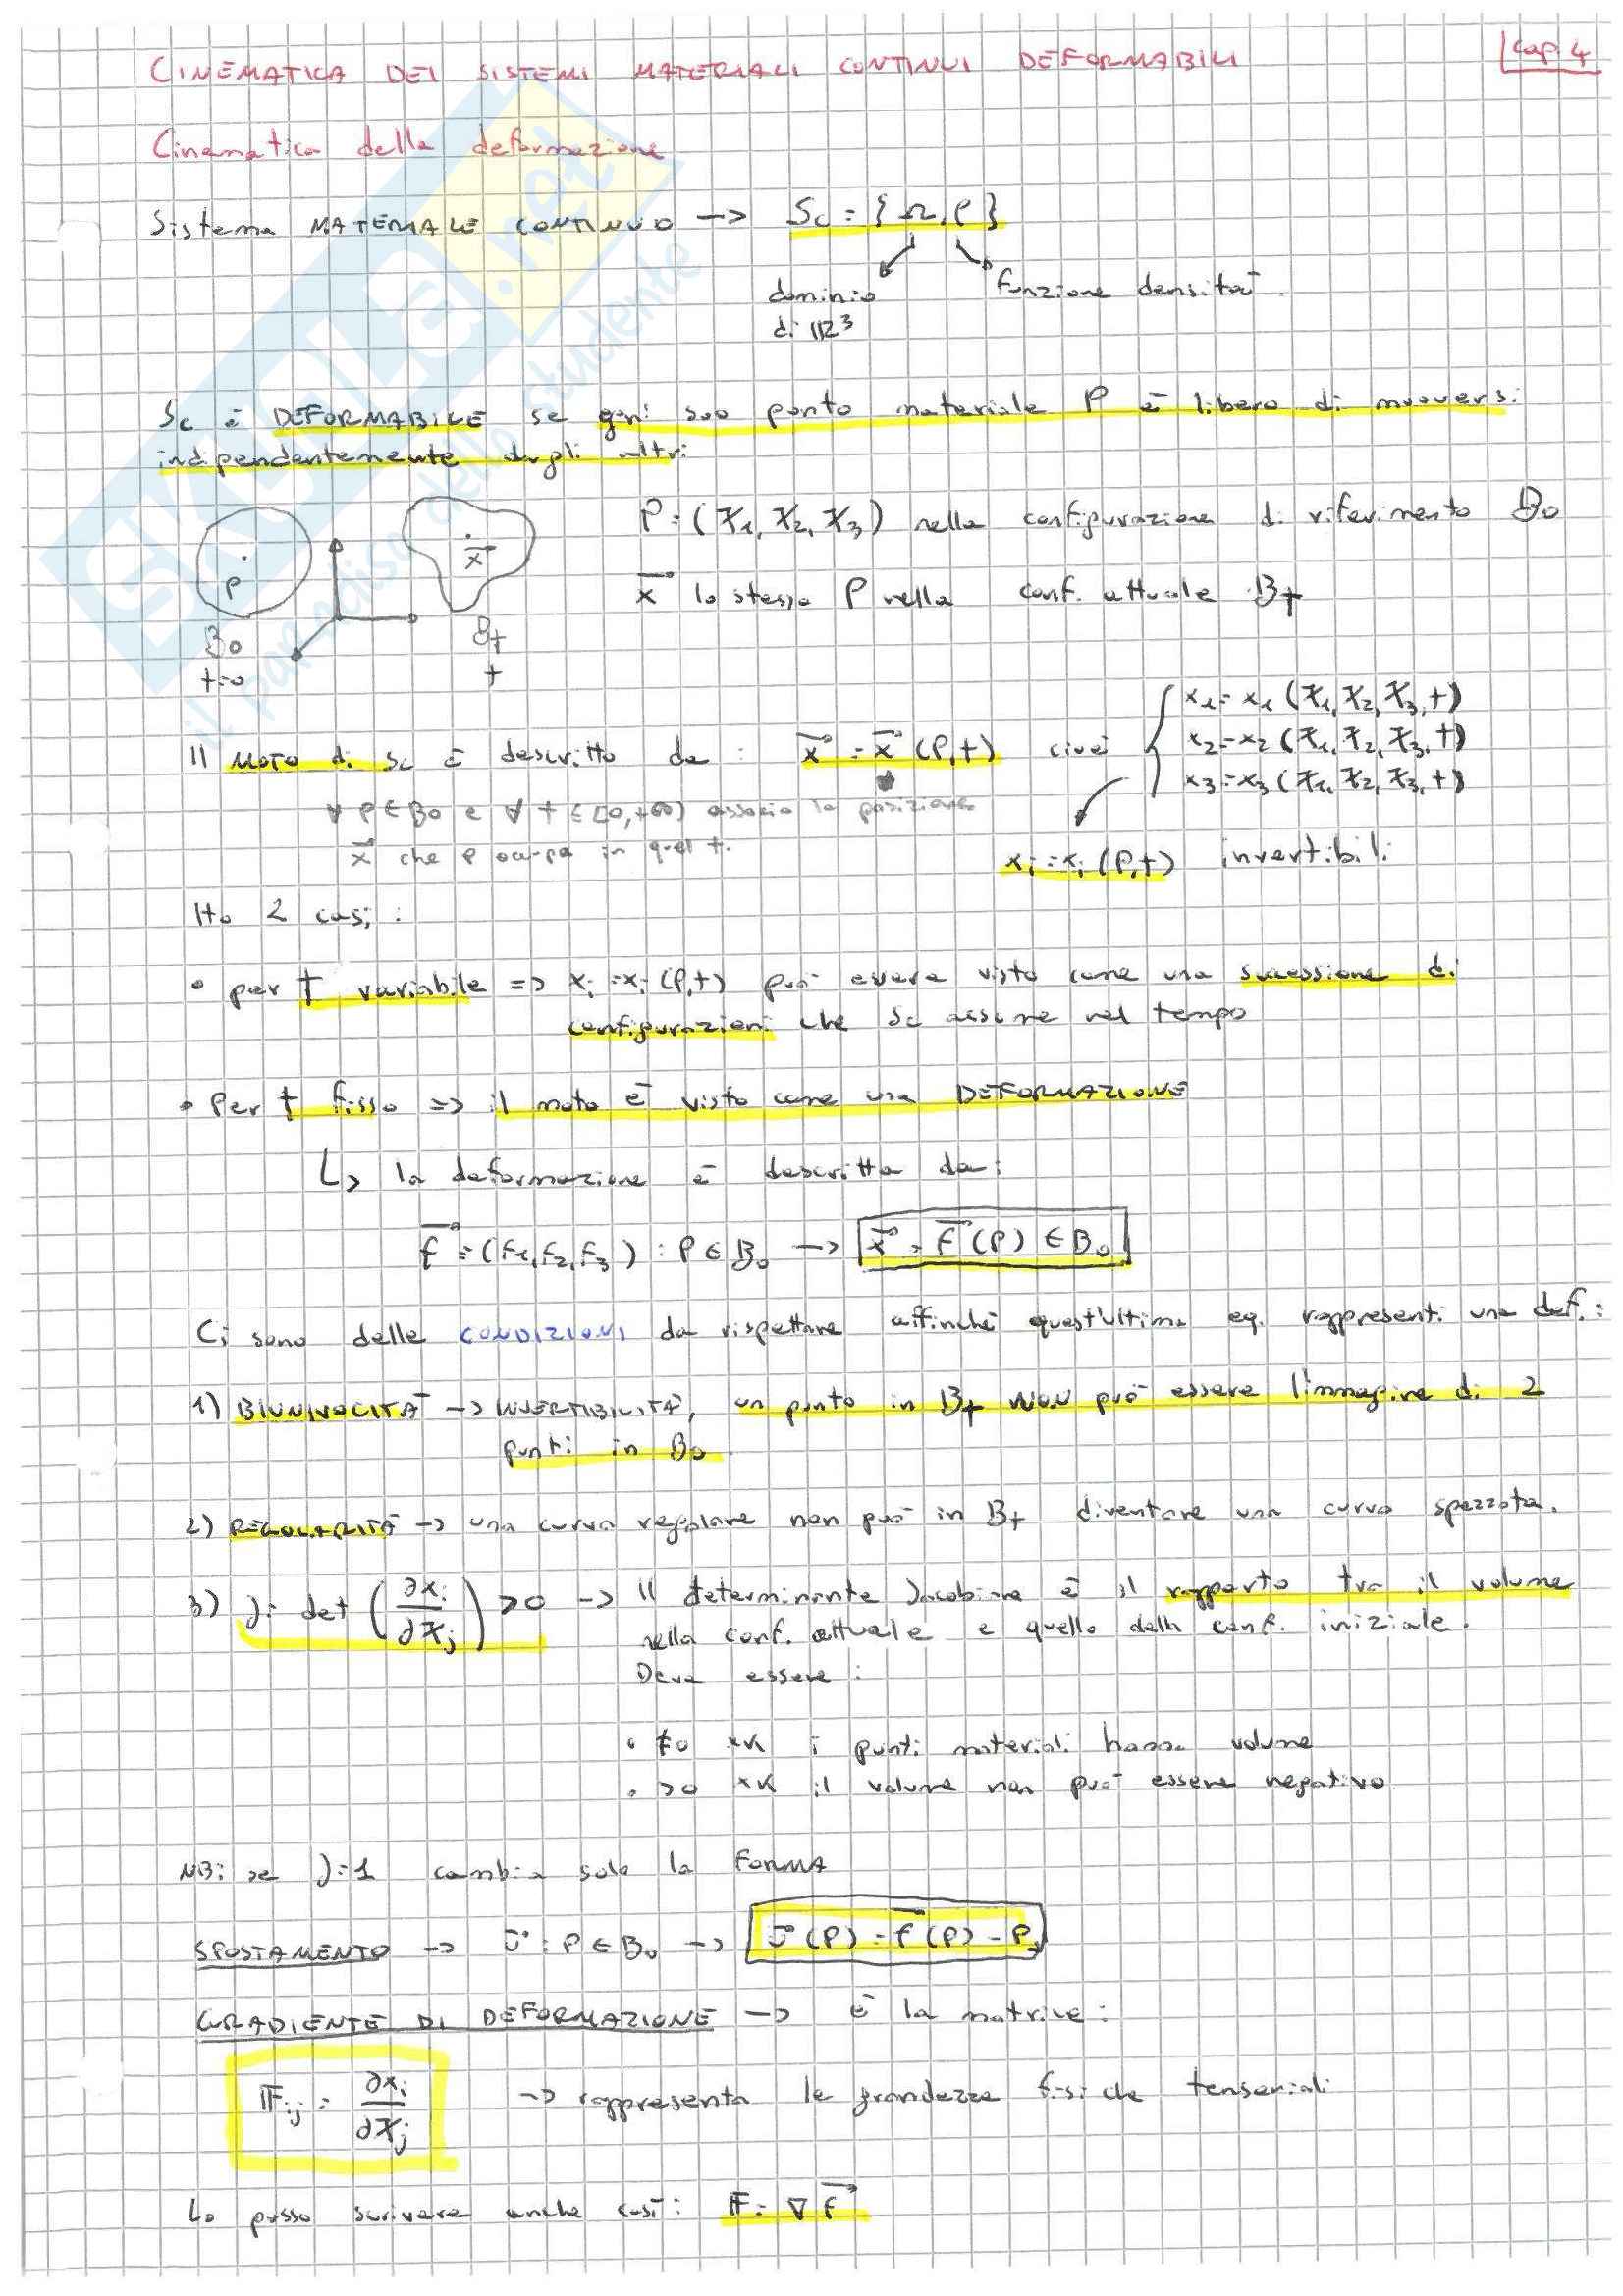 CINEMATICA DEI SISTEMI MATERIALI CONTINUI DEFORMABILI
Cap. 4
Cinematica della deformazione
Sistema MATERIALE CONTINUO -> Sc = {Ω, ρ}
dominio di ℝ³
funzione densità.
Sc è DEFORMABILE se ogni suo punto materiale P è libero di muoversi
indipendentemente dagli altri
P = (X₁, X₂, X₃) nella configurazione di riferimento B₀
x⃗ lo stesso P nella conf. attuale Bt
P
x⃗
B₀
t=0
Bt
t
Il MOTO di Sc è descritto da: x⃗ = x⃗(P,t) cioè
x₁ = x₁(X₁, X₂, X₃, t)
x₂ = x₂(X₁, X₂, X₃, t)
x₃ = x₃(X₁, X₂, X₃, t)
∀ P ∈ B₀ e ∀ t ∈ [0,+∞) associo la posizione
x⃗ che P occupa in quel t.
xi = xi(P,t) invertibili
Ho 2 casi:
• per t variabile => xi = xi(P,t) può essere visto come una successione di
configurazioni che Sc assume nel tempo
• Per t fisso => il moto è visto come una DEFORMAZIONE
↳ la deformazione è descritta da:
f⃗ = (f₁, f₂, f₃) : P ∈ B₀ -> x⃗ = f⃗(P) ∈ B₀
Ci sono delle CONDIZIONI da rispettare affinchè quest'ultima eq. rappresenti una def.:
1) BIUNIVOCITÀ -> INVERTIBILITÀ, un punto in Bt NON può essere l'immagine di 2
punti in B₀
2) REGOLARITÀ -> una curva regolare non può in Bt diventare una curva spezzata.
3) J = det (∂xi/∂Xj) > 0 -> Il determinante Jacobiano è il rapporto tra il volume
nella conf. attuale e quello della conf. iniziale.
Deve essere:
• ≠0 xK i punti materiali hanno volume
• >0 xK il volume non può essere negativo
NB: se J=1 cambia solo la FORMA
SPOSTAMENTO -> u⃗ : P ∈ B₀ -> u⃗(P) = f⃗(P) - P
GRADIENTE DI DEFORMAZIONE -> è la matrice:
𝔽ij = ∂xi/∂Xj -> rappresenta le grandezze fisiche tensoriali
Lo posso scrivere anche così: 𝔽 = ∇f⃗
SKUOLA.net
il paradiso dello studente